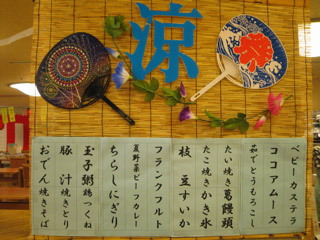 涼
ベビーカステラ
ココアムース
茹でとうもろこし
たい焼き葛饅頭
たこ焼きかき氷
枝豆すいか
フランクフルト
夏野菜ビーフカレー
ちらしにぎり
玉子粥鶏つくね
豚汁焼きとり
おでん焼きそば